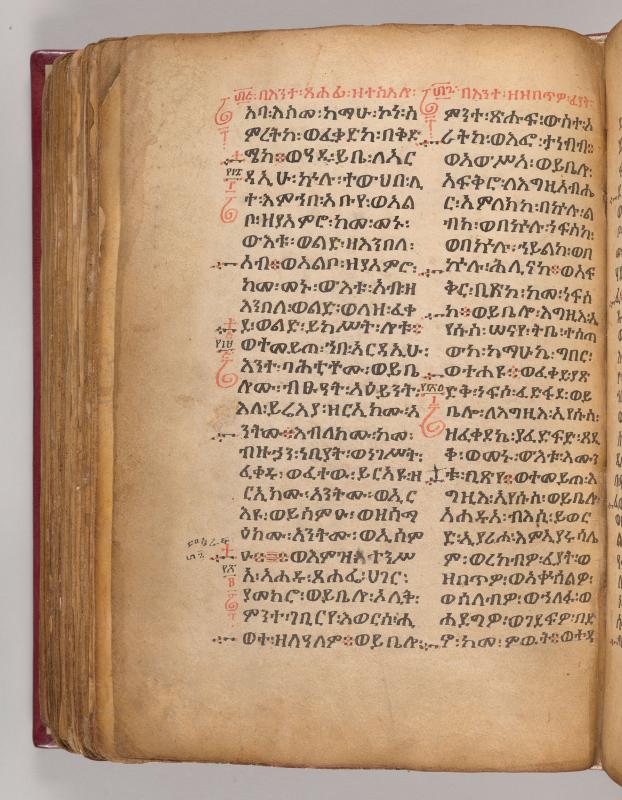 በእንተ፡ጸሐፊ፡ዘተስእሎ፡
አባ፡እስመ፡ከማሁ፡ኮነ፡ስ
ምረትከ፡ወፈቃድከ፡በቅድ
ሜከ፨ወዓዲ፡ይቤ፡ለአር
ዳኢሁ፡ኵሉ፡ተውህበ፡ሊ
ተ፡እምኀበ፡አቡየ፡ወአል
ቦ፡ዘያአምሮ፡ከመ፡መኑ፡
ውእቱ፡ወልድ፡ዘእንበለ፡
አብ፨ወአልቦ፡ዘያአምሮ፡
ከመ፡መኑ፡ውእቱ፡አብ፡ዘ
እንበለ፡ወልድ፡ወለዘ፡ፈቀ
ደ፡ወልድ፡ይከሥት፡ሎቱ፨
ወተመይጠ፡ኀበ፡አርዳኢሁ፡
እንተ፡ባሕቲቶሙ፡ወይቤ
ሎሙ፡ብፁዓት፡አዕይንት፡
እለ፡ይሬእያ፡ዘርኢክሙ፡አ
ንትሙ፨እብለክሙ፡ከመ፡
ብዙኃን፡ነቢያት፡ወነገሥት፡
ፈቀዱ፡ወፈተዉ፡ይርአዩ፡ዘ
ርኢክሙ፡አንትሙ፡ወኢር
እዩ፡ወይስምዑ፡ወዘሰማ
ዕክሙ፡አንትሙ፡ወኢሰም
ዑ፨ወእምዝ፡ተንሥ
አ፡አሐዱ፡ጸሐፌ፡ሀገር፡
ያመክሮ፡ወይቤሎ፡ሊቅ፡
ምንተ፡ገቢርየ፡እወርስ፡ሒ
ወተ፡ዘለዓለም፨ወይቤሎ
በእንተ፡ዘዘበጥዎ፡ፈያት፡
ምንተ፡ጽሑፍ፡ውስተ፡አ
ሪትከ፡ወእፎ፡ታነብብ፡
ወአውሥአ፡ወይቤሎ፡
አፍቅሮ፡ለእግዚአብሔ
ር፡አምላክከ፡በኵሉ፡ል
ብከ፡ወበኵሉ፡ነፍስከ፡
ወበኵሉ፡ኀይልከ፡ወበ
ኵሉ፡ሕሊናከ፨ወአፍ
ቅር፡ቢጸከ፡ከመ፡ነፍስ
ከ፨ወይቤሎ፡እግዚእ፡ኢ
የሱስ፡ሠናየ፡ትቤ፡ተሰጠ
ውከ፡ከማሁኬ፡ግበር፡
ወተሐዩ፨ወፈቀደ፡ያጽ
ድቅ፡ነፍሶ፡ፈድፋደ፡ወይ
ቤሎ፡ለእግዚእ፡ኢየሱስ፡
ቅ፡ወመኑ፡ውእቱ፡እሙን
ቱ፡ቢጽየ፨ወተመይጠ፡እ
ግዚእ፡ኢየሱስ፡ወይቤሎ፡
አሐዱ፡ብእሲ፡ይወር
ድ፡ኢያሪሖ፡እምኢየሩሳሌ
ም፡ወረከብዎ፡ፈያት፡ወ
ዘበጥዎ፡ወአቍሰልዎ፡
ወሰለብዎ፡ወኀለፉ፡ወ
ሐደግዎ፡ወገደፍዎ፡በድ